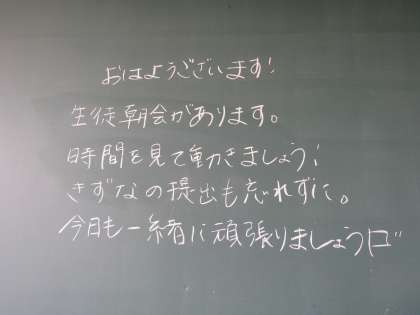 おはようございます!
生徒朝会があります。
時間を見て動きましょう!
きずなの提出も忘れずに。
今日も一緒に頑張りましょう